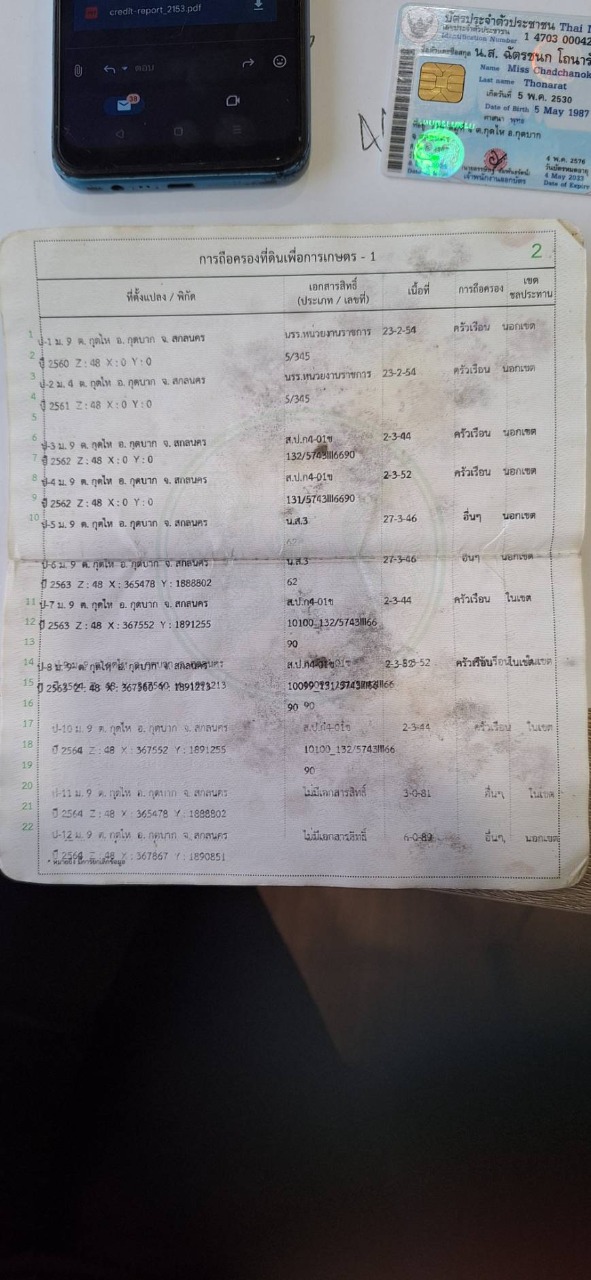 credit-report_2153.pdf
ตอบ
38
บัตรประจำตัวประชาชน Thai
Identification Number 1 4703 00042
ชื่อตัวและชื่อสกุล น.ส. ฉัตรชนก โถนาร
Name Miss Chadchanok
Last name Thonarat
เกิดวันที่ 5 พ.ค. 2530
Date of Birth 5 May 1987
ศาสนา พุทธ
ต.กุดไห อ.กุดบาก
4 พ.ค. 2576
วันบัตรหมดอายุ
4 May 2033
Date of Expiry
เจ้าพนักงานออกบัตร
การถือครองที่ดินเพื่อการเกษตร - 1 2
ที่ตั้งแปลง / พิกัด เอกสารสิทธิ์ (ประเภท / เลขที่) เนื้อที่ การถือครอง เขตชลประทาน
1 ป-1 ม. 9 ต. กุดไห อ. กุดบาก จ. สกลนคร นรร.หน่วยงานราชการ 23-2-54 ครัวเรือน นอกเขต
2 ปี 2560 Z : 48 X : 0 Y : 0 5/345
3 ป-2 ม. 4 ต. กุดไห อ. กุดบาก จ. สกลนคร นรร.หน่วยงานราชการ 23-2-54 ครัวเรือน นอกเขต
4 ปี 2561 Z : 48 X : 0 Y : 0 5/345
5
6 ป-3 ม. 9 ต. กุดไห อ. กุดบาก จ. สกลนคร ส.ป.ก4-01ข 2-3-44 ครัวเรือน นอกเขต
7 ปี 2562 Z : 48 X : 0 Y : 0 132/5743III6690
8 ป-4 ม. 9 ต. กุดไห อ. กุดบาก จ. สกลนคร ส.ป.ก4-01ข 2-3-52 ครัวเรือน นอกเขต
9 ปี 2562 Z : 48 X : 0 Y : 0 131/5743III6690
10 ป-5 ม. 9 ต. กุดไห อ. กุดบาก จ. สกลนคร น.ส.3 27-3-46 อื่นๆ นอกเขต
62
ป-6 ม. 9 ต. กุดไห อ. กุดบาก จ. สกลนคร น.ส.3 27-3-46 อื่นๆ นอกเขต
ปี 2563 Z : 48 X : 365478 Y : 1888802 62
11 ป-7 ม. 9 ต. กุดไห อ. กุดบาก จ. สกลนคร ส.ป.ก4-01ข 2-3-44 ครัวเรือน ในเขต
12 ปี 2563 Z : 48 X : 367552 Y : 1891255 10100_132/5743III66
13 90
14 ป-8 ส.ป.ก4-01ข
15
16 90 90
17 ป-10 ม. 9 ต. กุดไห อ. กุดบาก จ. สกลนคร ส.ป.ก4-01ข 2-3-44 ครัวเรือน ในเขต
18 ปี 2564 Z : 48 X : 367552 Y : 1891255 10100_132/5743III66
19 90
20 ป-11 ม. 9 ต. กุดไห อ. กุดบาก จ. สกลนคร ไม่มีเอกสารสิทธิ์ 3-0-81 อื่นๆ ในเขต
21 ปี 2564 Z : 48 X : 365478 Y : 1888802
22 ป-12 ม. 9 ต. กุดไห อ. กุดบาก จ. สกลนคร ไม่มีเอกสารสิทธิ์ 6-0-89 อื่นๆ นอกเขต
ปี 2564 Z : 48 X : 367867 Y : 1890851